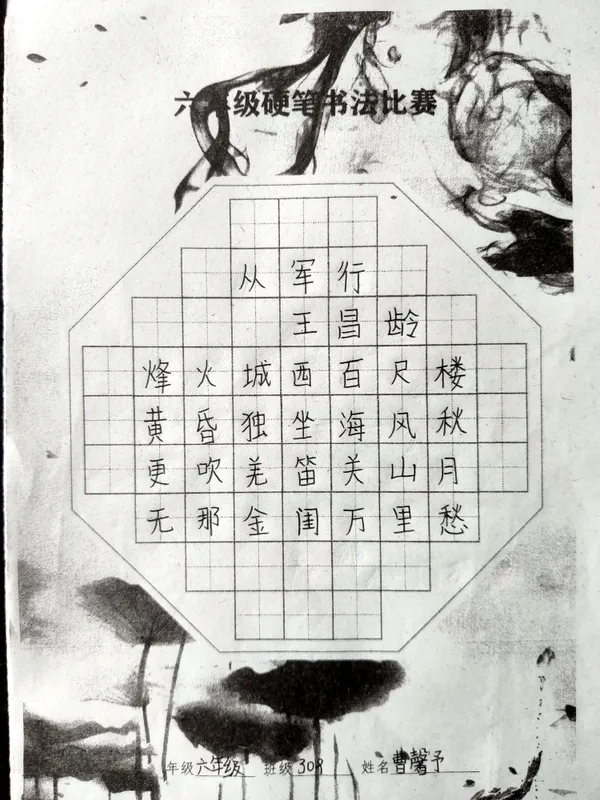 六年级硬笔书法比赛
从军行
王昌龄
烽火城西百尺楼
黄昏独坐海风秋
更吹羌笛关山月
无那金闺万里愁
年级六年级 班级308 姓名曹馨予